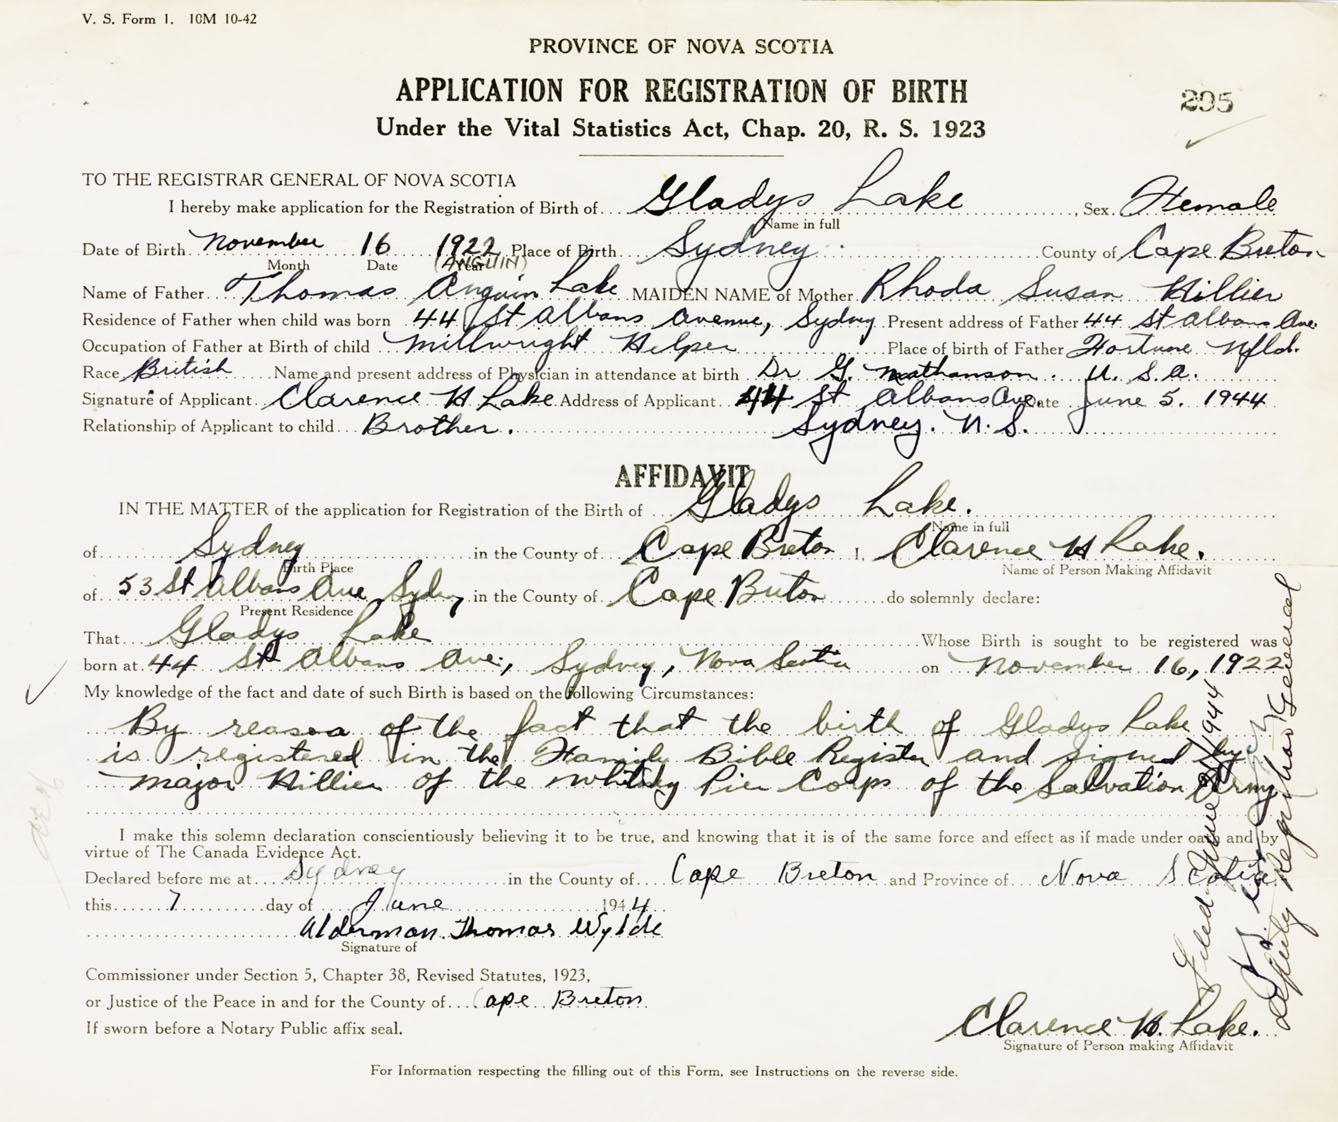 V. S. Form 1. 10M 10-42
PROVINCE OF NOVA SCOTIA
APPLICATION FOR REGISTRATION OF BIRTH
295
Under the Vital Statistics Act, Chap. 20, R. S. 1923
TO THE REGISTRAR GENERAL OF NOVA SCOTIA
I hereby make application for the Registration of Birth of Gladys Lake, Sex Female
Name in full
Date of Birth November 16 1922 Place of Birth Sydney County of Cape Breton
Month Date Year (ANGUIN)
Name of Father Thomas Anguin Lake MAIDEN NAME of Mother Rhoda Susan Hillier
Residence of Father when child was born 44 St Albans Avenue, Sydney Present address of Father 44 St Albans Ave
Occupation of Father at Birth of child Millwright Helper Place of birth of Father Fortune Nfld.
Race British Name and present address of Physician in attendance at birth Dr G. Mathanson. U. S. A.
Signature of Applicant Clarence H Lake Address of Applicant 44 St Albans Ave. Date June 5. 1944
Relationship of Applicant to child Brother. Sydney. N. S.
AFFIDAVIT
IN THE MATTER of the application for Registration of the Birth of Gladys Lake.
Name in full
of Sydney in the County of Cape Breton I, Clarence H Lake.
Birth Place Name of Person Making Affidavit
of 53 St Albans Ave Sydney, in the County of Cape Breton do solemnly declare:
Present Residence
That Gladys Lake Whose Birth is sought to be registered was
born at 44 St Albans Ave, Sydney, Nova Scotia on November 16, 1922
My knowledge of the fact and date of such Birth is based on the following Circumstances:
By reason of the fact that the birth of Gladys Lake
is registered in the Family Bible Register and signed by
Major Hillier of the Whitney Pier Corps of the Salvation Army
I make this solemn declaration conscientiously believing it to be true, and knowing that it is of the same force and effect as if made under oath and by
virtue of The Canada Evidence Act.
Declared before me at Sydney in the County of Cape Breton and Province of Nova Scotia
this 7 day of June 1944
Alderman. Thomas Wylde
Signature of
Commissioner under Section 5, Chapter 38, Revised Statutes, 1923,
or Justice of the Peace in and for the County of Cape Breton
If sworn before a Notary Public affix seal.
Clarence H. Lake.
Signature of Person making Affidavit
For Information respecting the filling out of this Form, see Instructions on the reverse side.
Filed June 1944
Deputy Registrar General